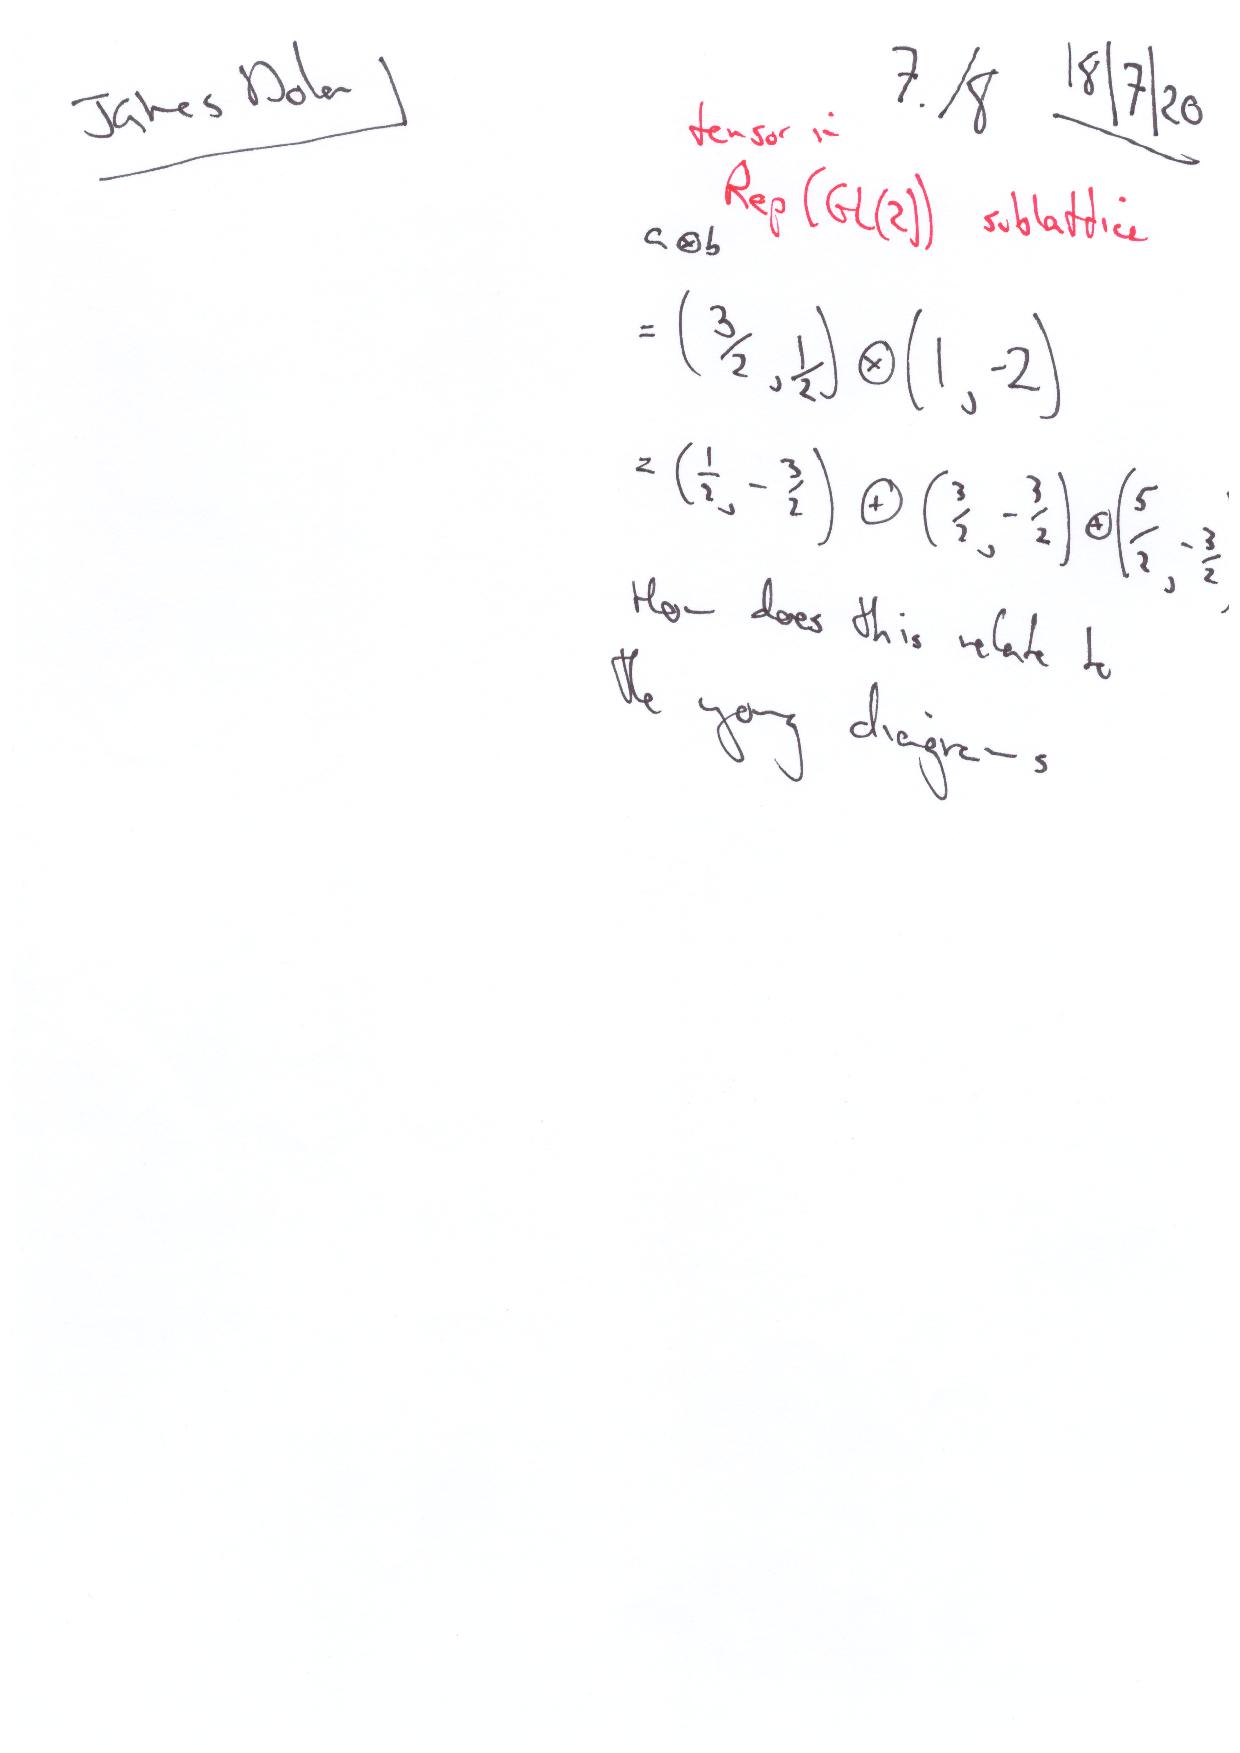 James Dolan
7./8 18/7/20
tensor in
Rep (GL(2)) sublattice
a ⊗ b
= (3/2, 1/2) ⊗ (1, -2)
= (1/2, -3/2) ⊕ (3/2, -3/2) ⊕ (5/2, -3/2)
How does this relate to
the young diagrams